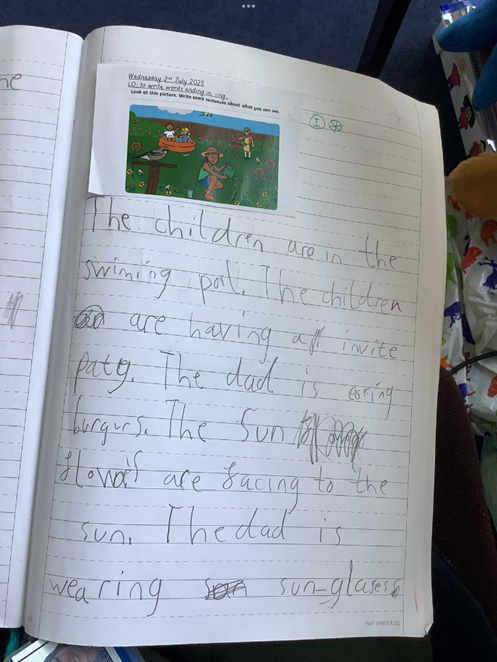 ne
Wednesday 2nd July 2025
LO: to write words ending in -ing.
Look at this picture. Write some sentences about what you can see.
I
The children are in the
swiming porl. The children
are having a invite
patg. The dad is coking
burgurs. The sun
flowers are facing to the
sun. The dad is
wearing sun-glases